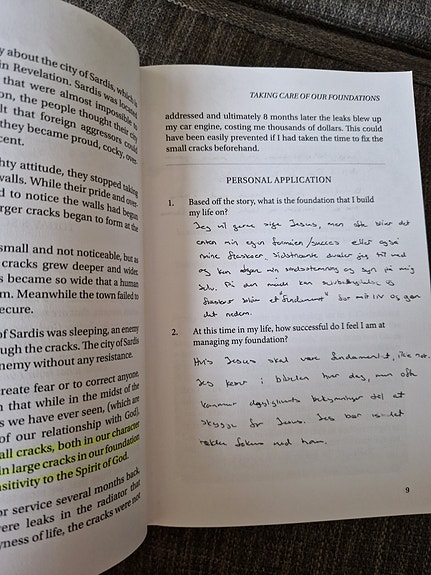 y about the city of Sardis, which is
in Revelation. Sardis was located
that were almost impossible to
on, the people thought their city
lt that foreign aggressors could
they became proud, cocky, over-
cent.
hty attitude, they stopped taking
walls. While their pride and over-
d to notice the walls had begun
rger cracks began to form at the
small and not noticeable, but as
cracks grew deeper and wider.
s became so wide that a human
m. Meanwhile the town failed to
ecure.
of Sardis was sleeping, an enemy
ugh the cracks. The city of Sardis
nemy without any resistance.
reate fear or to correct anyone.
n that while in the midst of the
s we have ever seen, (which are
of our relationship with God),
all cracks, both in our character
in large cracks in our foundation
nsitivity to the Spirit of God.
or service several months back,
ere leaks in the radiator that
yness of life, the cracks were not
TAKING CARE OF OUR FOUNDATIONS
addressed and ultimately 8 months later the leaks blew up
my car engine, costing me thousands of dollars. This could
have been easily prevented if I had taken the time to fix the
small cracks beforehand.
PERSONAL APPLICATION
1. Based off the story, what is the foundation that I build
my life on?
Jeg vil gerne sige Jesus, men ofte bliver det
enten min egen formåen/succes eller også
mine fiaskoer. Sidstnævnte dvæler jeg til med
og kan afgøre min sindsstemning og syn på mig
selv. På den måde kan
fiaskoer blive et "fundament" for mit liv og gøre
det nedern.
2. At this time in my life, how successful do I feel I am at
managing my foundation?
Hvis Jesus skal være fundamentet, ikke nok.
Jeg læser i bibelen hver dag, men ofte
kommer dagligdagens bekymringer til at
skygge for Jesus. Jeg bør i stedet
række fokus mod ham.
9